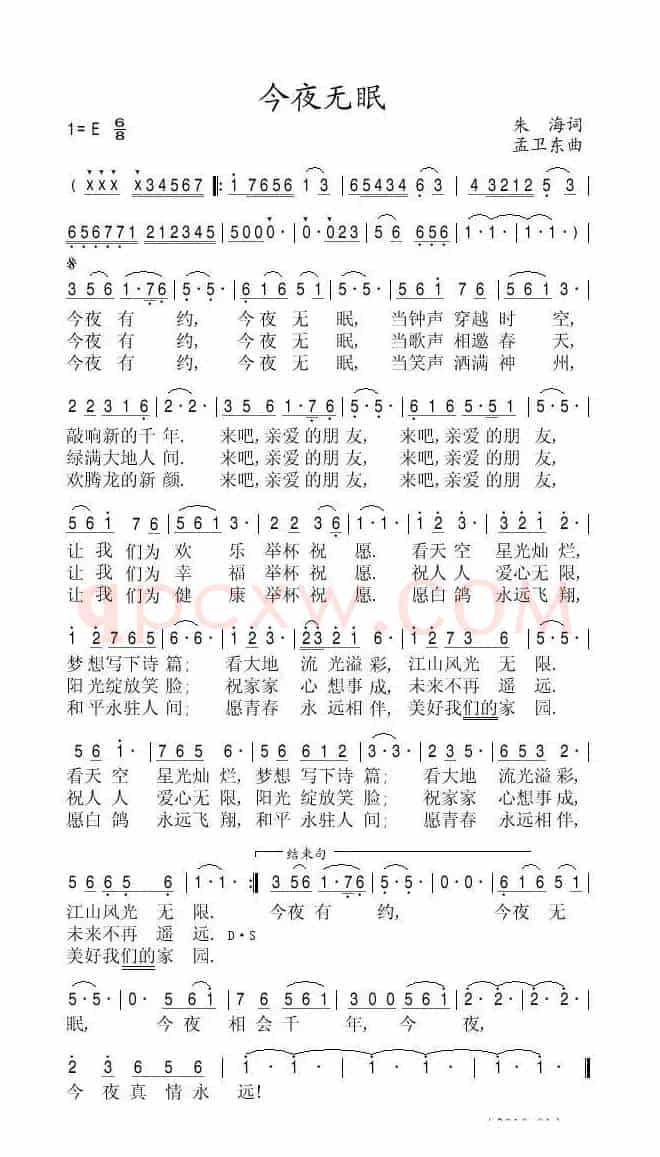 今夜无眠
1=E 6/8
朱 海词
孟卫东曲
( X X X X34567 ‖: 1 76656 1 3 | 65434 6 3 | 4 3212 5 3 |
656771 212345 | 5000 0· | 0·023 | 5 6 656 | 1·1· | 1·1· )
3 5 6 1·76 | 5·5· | 6 1 6 5 51 | 5·5· | 5 6 1 7 6 | 5 5 3 5 | 3·3· |
今夜有约, 今夜无眠, 当钟声穿越时空,
今夜有约, 今夜无眠, 当歌声相邀春天,
今夜有约, 今夜无眠, 当笑声洒满神州,
2 2 3 1 6 | 2·2· | 3 5 6 1·76 | 5·5· | 6 1 6 5·51 | 5·5· |
敲响新的千年. 来吧,亲爱的朋友, 来吧,亲爱的朋友,
绿满大地人间. 来吧,亲爱的朋友, 来吧,亲爱的朋友,
欢腾龙的新颜. 来吧,亲爱的朋友, 来吧,亲爱的朋友,
5 6 1 7 6 | 5 6 1 3· | 2 2 3 6 | 1·1· | 1 2 3· | 3 2 1 2· |
让我们为欢乐举杯祝愿. 看天空星光灿烂,
让我们为幸福举杯祝愿. 祝人人爱心无限,
让我们为健康举杯祝愿. 愿白鸽永远飞翔,
qpcxw.com
1 2 1 7 6 5 | 6·6· | 1 2 3· | 2 3 2 1 6· | 1 2 1 7 3 | 5·5· |
梦想写下诗篇; 看大地流光溢彩, 江山风光无限.
阳光绽放笑脸; 祝家家心想事成, 未来不再遥远.
和平永驻人间; 愿青春永远相伴, 美好我们的家园.
5 6 1· | 7 6 5 6· | 5 6 5 3 1 2 | 3·3· | 4 5 6· | 6 5 3 2· |
看天空星光灿烂, 梦想写下诗篇; 看大地流光溢彩,
祝人人爱心无限, 阳光绽放笑脸; 祝家家心想事成,
愿白鸽永远飞翔, 和平永驻人间; 愿青春永远相伴,
结束句
5 6 6 5 6 | 1·1· :‖ 3 5 6 1·76 | 5·5· | 0·0· | 6 1 6 5 51 |
江山风光无限. 今夜有约, 今夜无
未来不再遥远. D·S
美好我们的家园.
5·5· | 0· 5 6 1 | 7 6 5 6 1 | 3 0 0 5 6 1 | 2·2· | 2·2· |
眠, 今夜相会千年,今夜,
2 3 6 5 6 | 1·1· | 1·1· | 1·1· | 1·1· ‖
今夜真情永远!